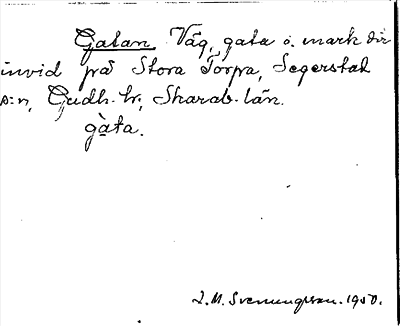 Gatan Väg, gata o. mark där
invid på Stora Torpa, Segerstad
s:n, Gudh. hr, Skarab. län.
gàta.
L. M. Svenungsson. 1950.